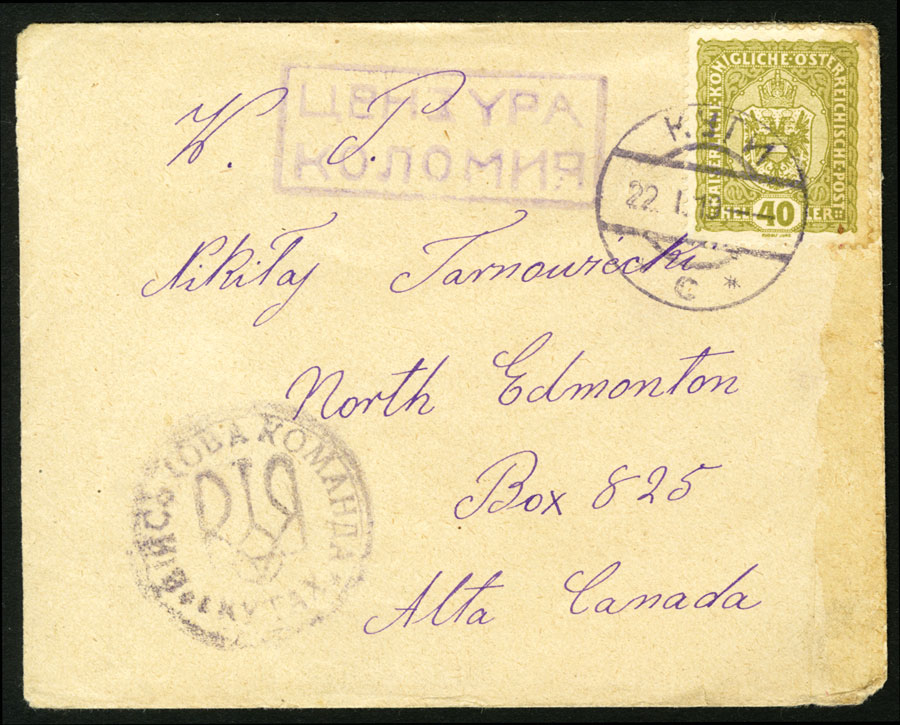 ЦЕНЗУРА
КОЛОМИЯ
W. P.
KAISERLICHE KÖNIGLICHE ÖSTERREICHISCHE POST
40
КУТИ
22. I. 19
C *
Nikitaj Tarnowiécki
North Edmonton
Box 825
Alta Canada
ВІЙСЬКОВА КОМАНДА
в КУТАХ